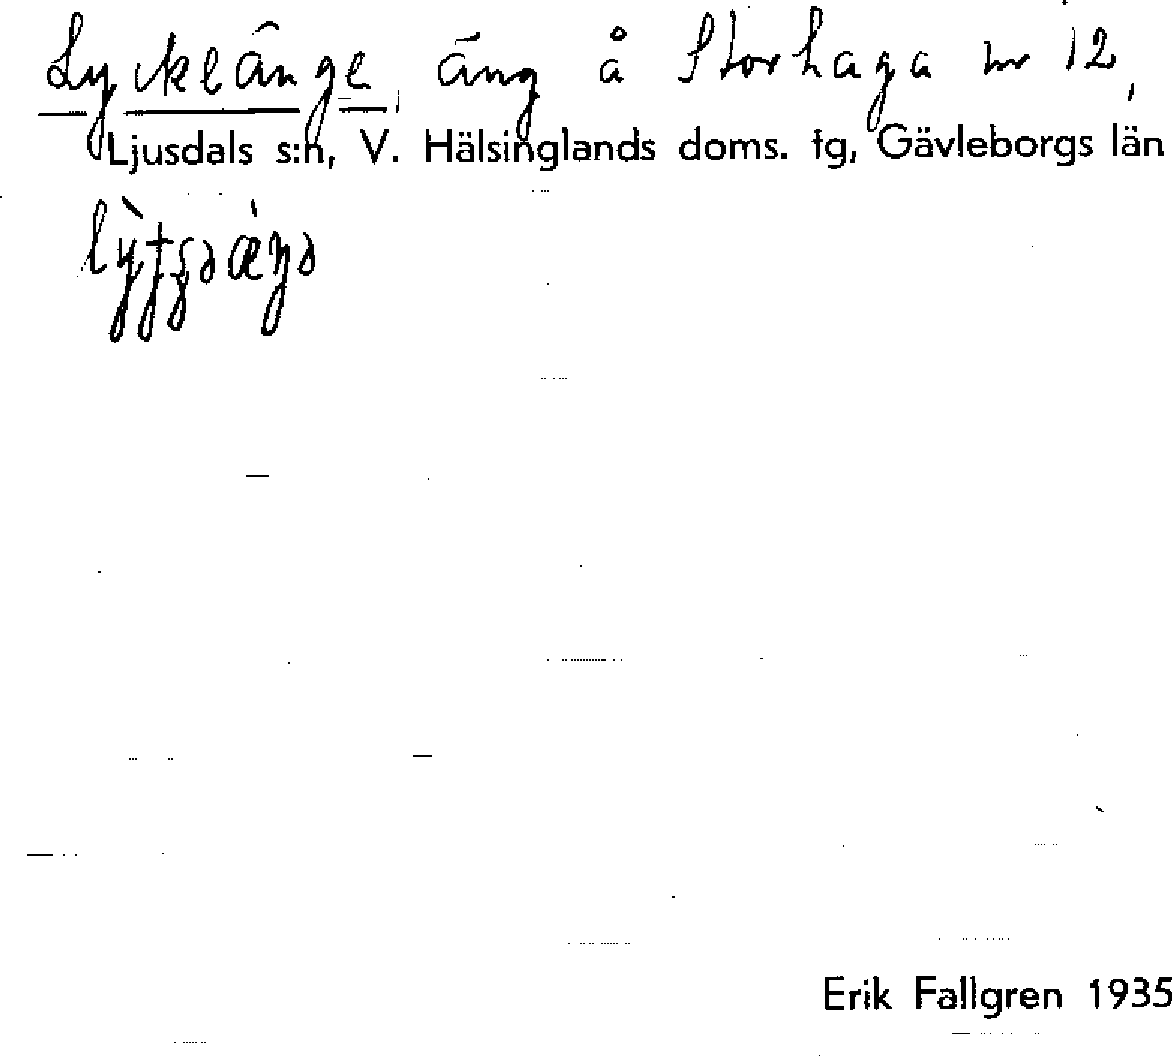 Lyckeänge, äng å Storhaga nr 12,
Ljusdals s:n, V. Hälsinglands doms. tg, Gävleborgs län
Erik Fallgren 1935